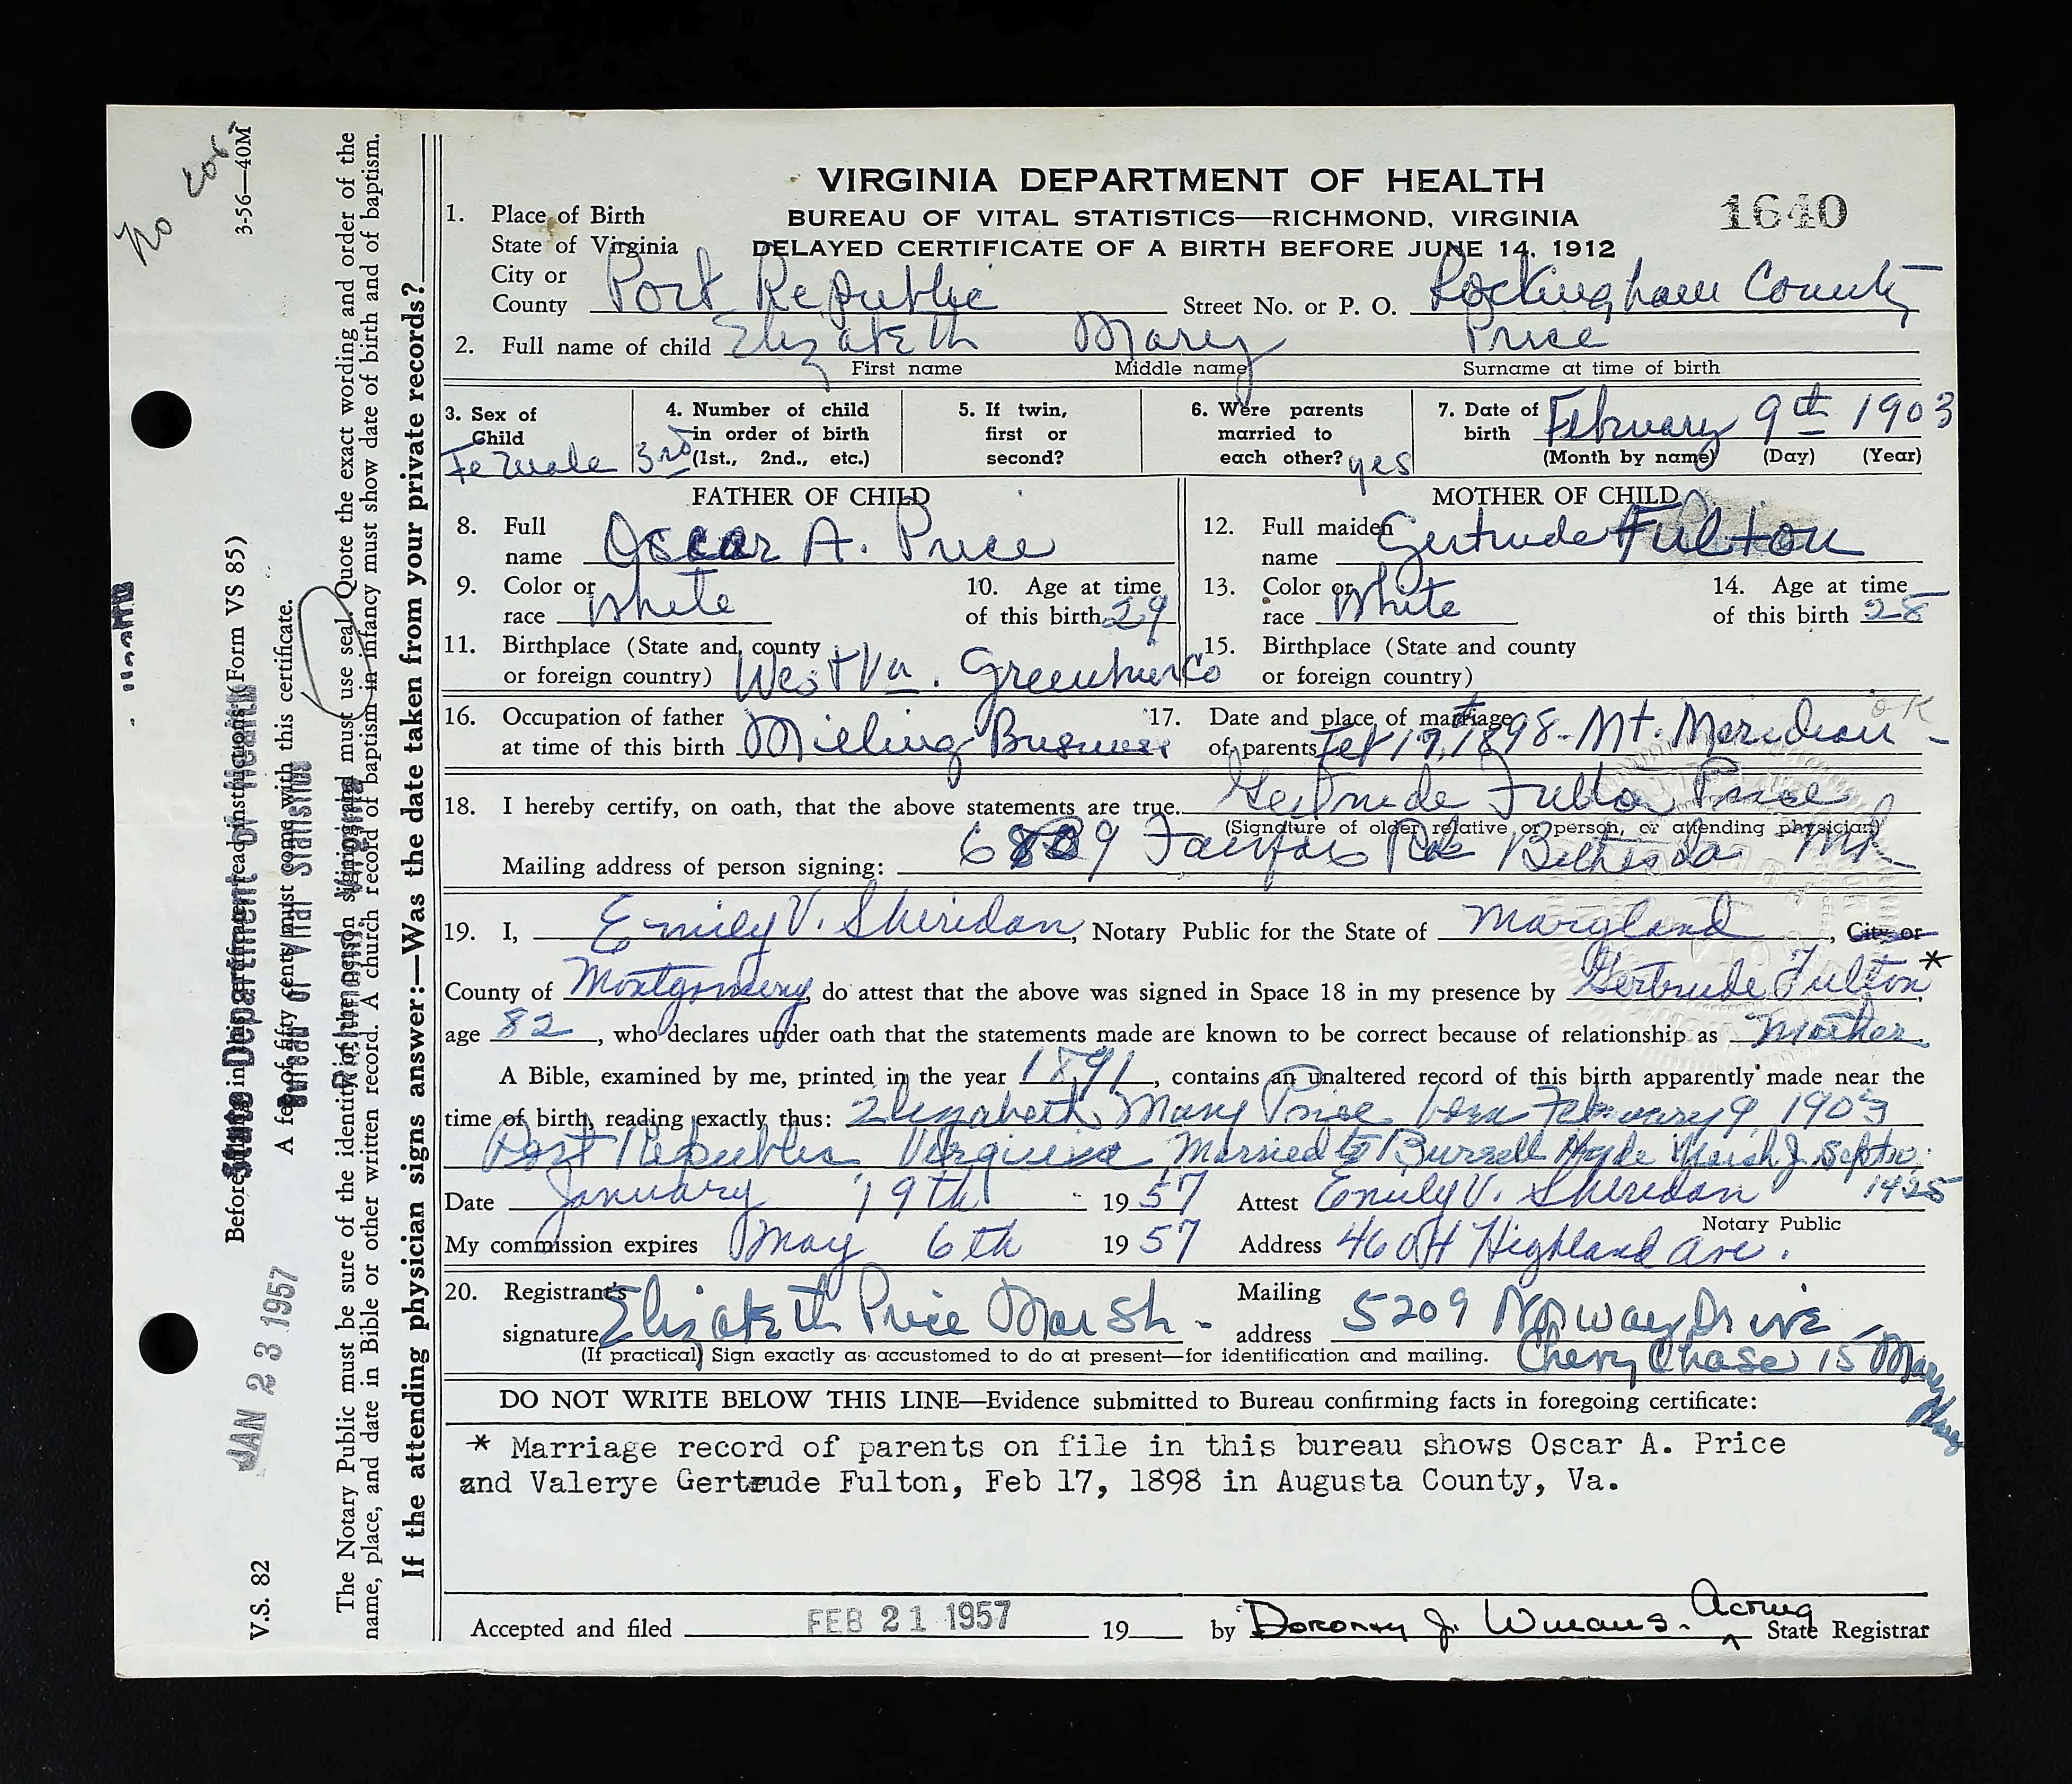 VIRGINIA DEPARTMENT OF HEALTH
BUREAU OF VITAL STATISTICS—RICHMOND, VIRGINIA
DELAYED CERTIFICATE OF A BIRTH BEFORE JUNE 14, 1912
1640
1. Place of Birth
State of Virginia
City or County Port Republic Street No. or P. O. Rockingham County
2. Full name of child Elizabeth Mary Price
First name Middle name Surname at time of birth
3. Sex of Child Female
4. Number of child in order of birth (1st., 2nd., etc.) 3rd
5. If twin, first or second?
6. Were parents married to each other? yes
7. Date of birth February 9th 1903
(Month by name) (Day) (Year)
FATHER OF CHILD
8. Full name Oscar A. Price
9. Color or race White
10. Age at time of this birth 29
11. Birthplace (State and county or foreign country) West Va. Greenbrier Co
MOTHER OF CHILD
12. Full maiden name Gertrude Fulton
13. Color or race White
14. Age at time of this birth 28
15. Birthplace (State and county or foreign country)
16. Occupation of father at time of this birth Milling Business
17. Date and place of marriage of parents Feb 17, 1898 - Mt. Meridian -
OK
18. I hereby certify, on oath, that the above statements are true. Gertrude Fulton Price
(Signature of older relative or person, or attending physician)
Mailing address of person signing: Fairfax Rd Bethesda Md
19. I, Emily V. Sheridan, Notary Public for the State of Maryland, City or
County of Montgomery, do attest that the above was signed in Space 18 in my presence by Gertrude Fulton*,
age 82, who declares under oath that the statements made are known to be correct because of relationship as Mother.
A Bible, examined by me, printed in the year 1891, contains an unaltered record of this birth apparently made near the
time of birth, reading exactly thus: Elizabeth Mary Price born February 9 1903
Port Republic Virginia Married to Burrell Hyde Marsh Jr Sept 10,
1925
Date January 19th 1957 Attest Emily V. Sheridan
Notary Public
My commission expires May 6th 1957 Address 4604 Highland Ave.
20. Registrant's signature Elizabeth Price Marsh - Mailing address 5209 Norway Drive
(If practical) Sign exactly as accustomed to do at present—for identification and mailing. Chevy Chase 15 Maryland
DO NOT WRITE BELOW THIS LINE—Evidence submitted to Bureau confirming facts in foregoing certificate:
* Marriage record of parents on file in this bureau shows Oscar A. Price
and Valerye Gertrude Fulton, Feb 17, 1898 in Augusta County, Va.
Accepted and filed FEB 21 1957 19 by Dorothy J. Winans. Acting State Registrar
No cor
V.S. 82 JAN 23 1957 Before filling in this certificate, read instructions (Form VS 85) 3-56—40M
State Department of Health
A fee of fifty cents must come with this certificate.
Bureau of Vital Statistics
Richmond, Virginia
The Notary Public must be sure of the identity of the person signing and must use seal. Quote the exact wording and order of the
name, place, and date in Bible or other written record. A church record of baptism in infancy must show date of birth and of baptism.
If the attending physician signs answer:—Was the date taken from your private records?